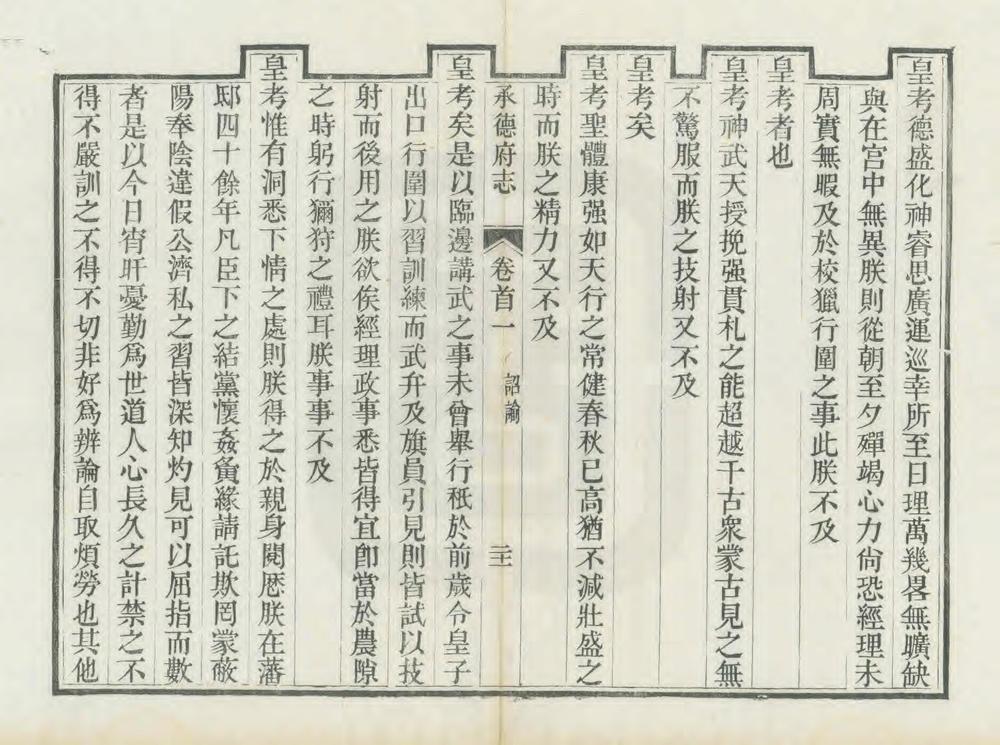 皇考德盛化神睿思廣運巡幸所至日理萬幾畧無曠缺
與在宮中無異朕則從朝至夕殫竭心力尙恐經理未
周實無暇及於校獵行圍之事此朕不及
皇考者也
皇考神武天授挽强貫札之能超越千古衆蒙古見之無
不驚服而朕之技射又不及
皇考矣
皇考聖體康强如天行之常健春秋已高猶不減壯盛之
時而朕之精力又不及
承德府志
卷首一
詔諭
皇考矣是以臨邊講武之事未曾舉行秪於前歲令皇子
出口行圍以習訓練而武弁及旗員引見則皆試以技
射而後用之朕欲俟經理政事悉皆得宜卽當於農隙
之時躬行獮狩之禮耳朕事事不及
皇考惟有洞悉下情之處則朕得之於親身閱歴朕在藩
邸四十餘年凡臣下之結黨懷姦夤緣請託欺罔蒙蔽
陽奉陰違假公濟私之習皆深知灼見可以屈指而數
者是以今日宵旰憂勤爲世道人心長久之計禁之不
得不嚴訓之不得不切非好爲辨論自取煩勞也其他